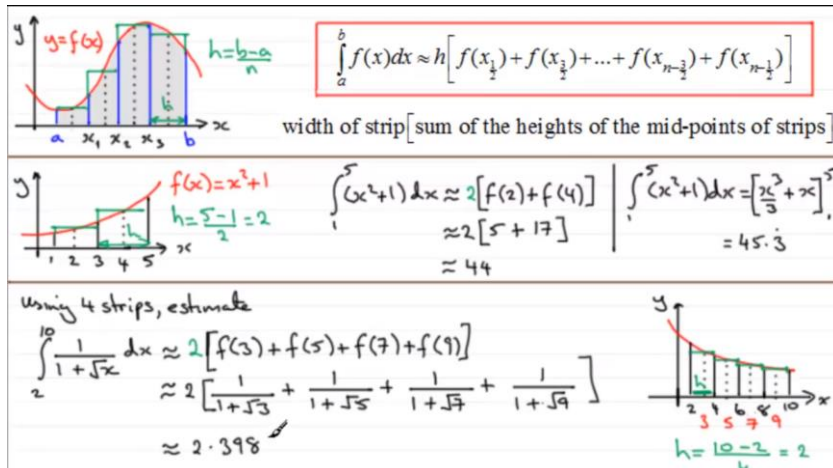 y
y=f(x)
h=b-a/n
h
a x₁ x₂ x₃ b x
∫ₐᵇ f(x)dx ≈ h[f(x_{1/2})+f(x_{3/2})+...+f(x_{n-3/2})+f(x_{n-1/2})]
width of strip[sum of the heights of the mid-points of strips]
y
f(x)=x²+1
h=5-1/2=2
h
1 2 3 4 5 x
∫₁⁵(x²+1)dx ≈ 2[f(2)+f(4)]
≈2[5+17]
≈ 44
∫₁⁵(x²+1)dx=[x³/3+x]₁⁵
= 45.3̇
using 4 strips, estimate
∫₂¹⁰ 1/(1+√x) dx ≈ 2[f(3)+f(5)+f(7)+f(9)]
≈ 2[1/(1+√3) + 1/(1+√5) + 1/(1+√7) + 1/(1+√9)]
≈ 2.398
y
h
2 4 6 8 10 x
3 5 7 9
h=10-2/4=2